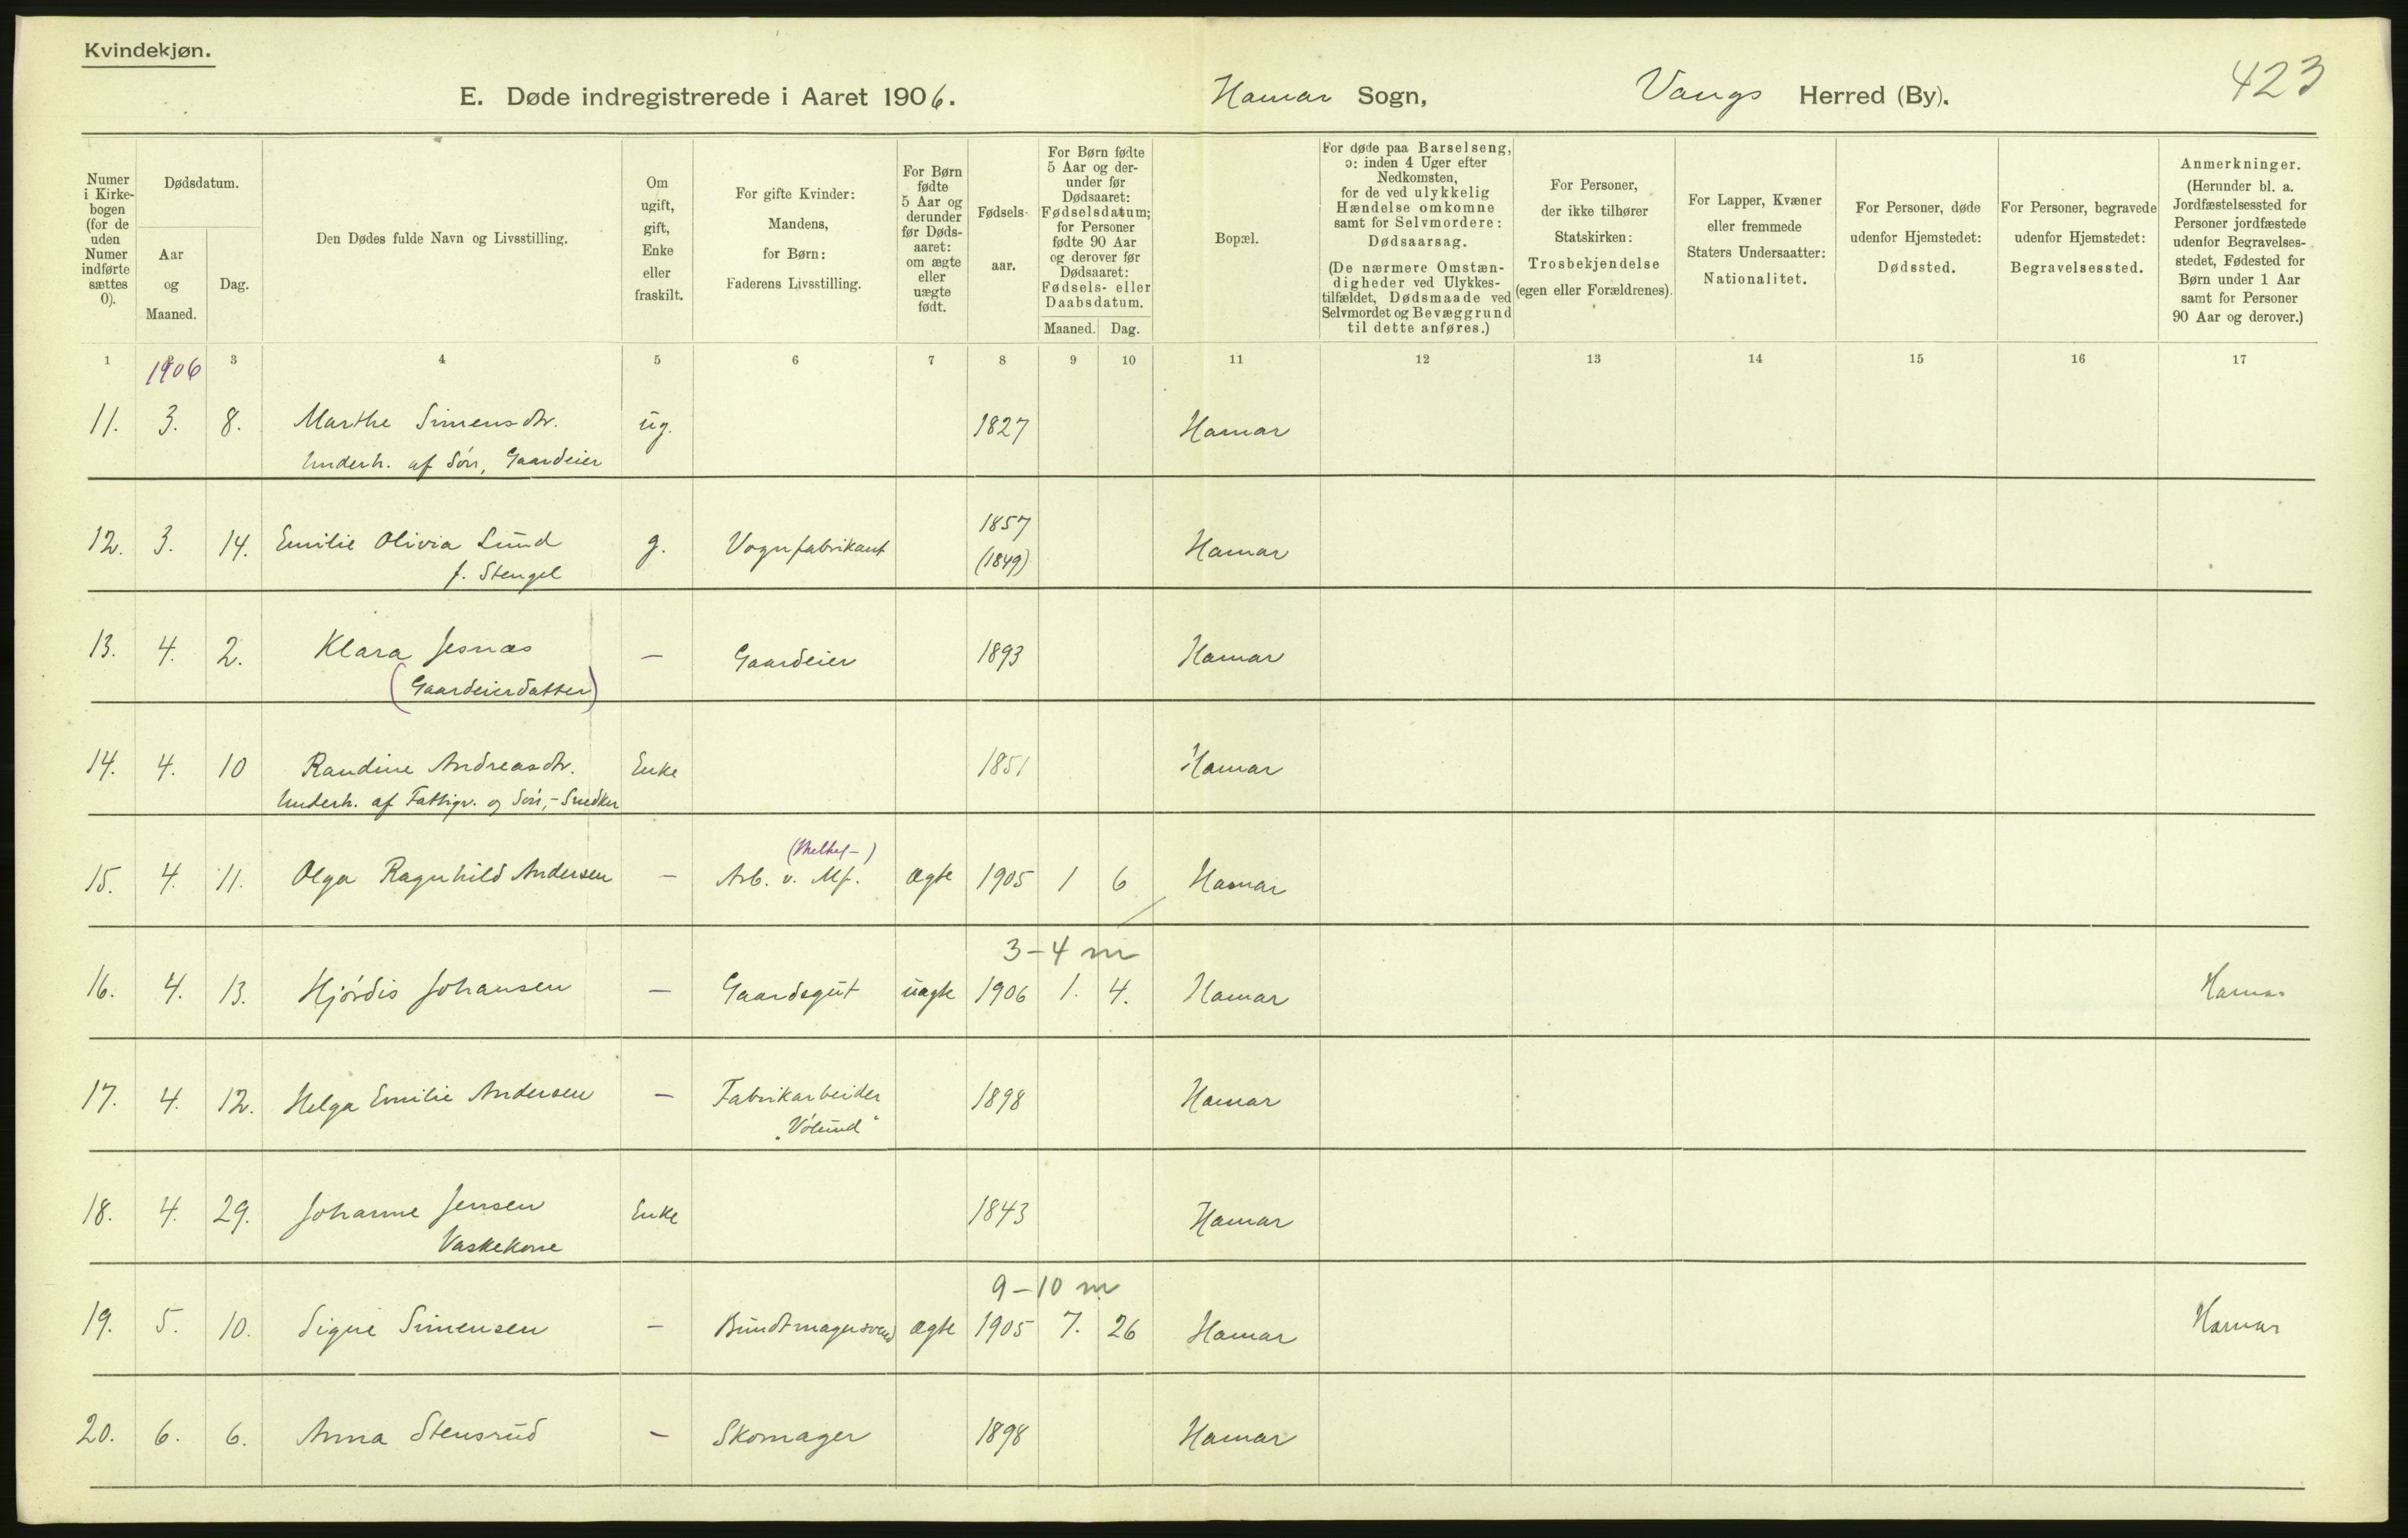 Kvindekjøn.
E. Døde indregistrerede i Aaret 1906. Hamar Sogn, Vangs Herred (By). 423
Numer i Kirkebogen (for de uden Numer indførte sættes 0).
Dødsdatum.
Aar og Maaned.
Dag.
Den Dødes fulde Navn og Livsstilling.
Om ugift, gift, Enke eller fraskilt.
For gifte Kvinder: Mandens, for Børn: Faderens Livsstilling.
For Børn fødte 5 Aar og derunder før Dødsaaret: om ægte eller uægte født.
Fødselsaar.
For Børn fødte 5 Aar og derunder før Dødsaaret: Fødselsdatum; for Personer fødte 90 Aar og derover før Dødsaaret: Fødsels- eller Daabsdatum.
Maaned. Dag.
Bopæl.
For døde paa Barselseng, ɔ: inden 4 Uger efter Nedkomsten, for de ved ulykkelig Hændelse omkomne samt for Selvmordere: Dødsaarsag.
(De nærmere Omstændigheder ved Ulykkestilfældet, Dødsmaade ved Selvmordet og Bevæggrund til dette anføres.)
For Personer, der ikke tilhører Statskirken: Trosbekjendelse (egen eller Forældrenes).
For Lapper, Kvæner eller fremmede Staters Undersaatter: Nationalitet.
For Personer, døde udenfor Hjemstedet: Dødssted.
For Personer, begravede udenfor Hjemstedet: Begravelsessted.
Anmerkninger.
(Herunder bl. a. Jordfæstelsessted for Personer jordfæstede udenfor Begravelsesstedet, Fødested for Børn under 1 Aar samt for Personer 90 Aar og derover.)
1 2 3 4 5 6 7 8 9 10 11 12 13 14 15 16 17
1906
11. 3. 8. Marthe Simensdtr. ug. 1827 Hamar
Underh. af Søn, Gaardeier
12. 3. 14. Emilie Olivia Lund g. Vognfabrikant 1857 (1849) Hamar
f. Stengel
13. 4. 2. Klara Jesnæs — Gaardeier 1893 Hamar
(Gaardeierdatter)
14. 4. 10 Randine Andreasdtr. Enke 1851 Hamar
Underh. af Fattigv. og Søn, - Snedker
15. 4. 11. Olga Ragnhild Andersen — Arb. v. Mf. ægte 1905 1 6 Hamar
3-4 m
16. 4. 13. Hjørdis Johansen — Gaardsgut uægte 1906 1. 4. Hamar Hamar
17. 4. 12. Helga Emilie Andersen — Fabrikarbeider 1898 Hamar
„Vølund“
18. 4. 29. Johanne Jensen Enke 1843 Hamar
Vaskekone
9-10 m
19. 5. 10. Signe Simensen — Bundtmagersvend ægte 1905 7. 26 Hamar Hamar
20. 6. 6. Anna Stensrud — Skomager 1898 Hamar